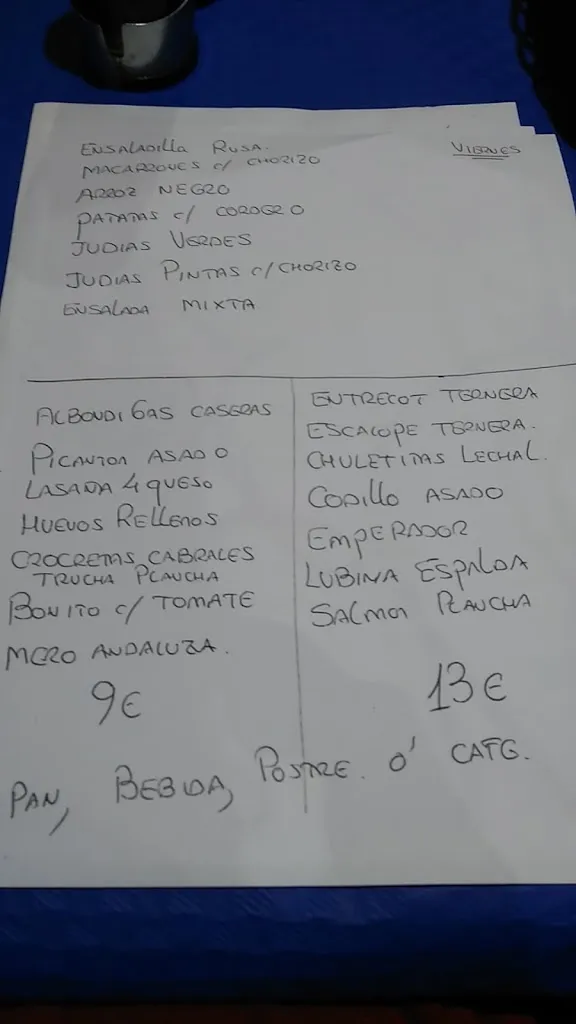 VIERNES
ENSALADILLA RUSA.
MACARRONES c/ CHORIZO
ARROZ NEGRO
PATATAS c/ CODORO
JUDIAS VERDES
JUDIAS PINTAS c/CHORIZO
ENSALADA MIXTA
ALBONDIGAS CASERAS
PICANTON ASADO
LASAÑA 4 QUESO
HUEVOS RELLENOS
CROCRETAS CABRALES
TRUCHA PLANCHA
BONITO c/ TOMATE
MERO ANDALUZA.
9€
ENTRECOT TERNERA
ESCALOPE TERNERA.
CHULETITAS LECHAL.
CODILLO ASADO
EMPERADOR
LUBINA ESPALDA
SALMON PLANCHA
13€
PAN, BEBIDA, POSTRE. O' CAFE.